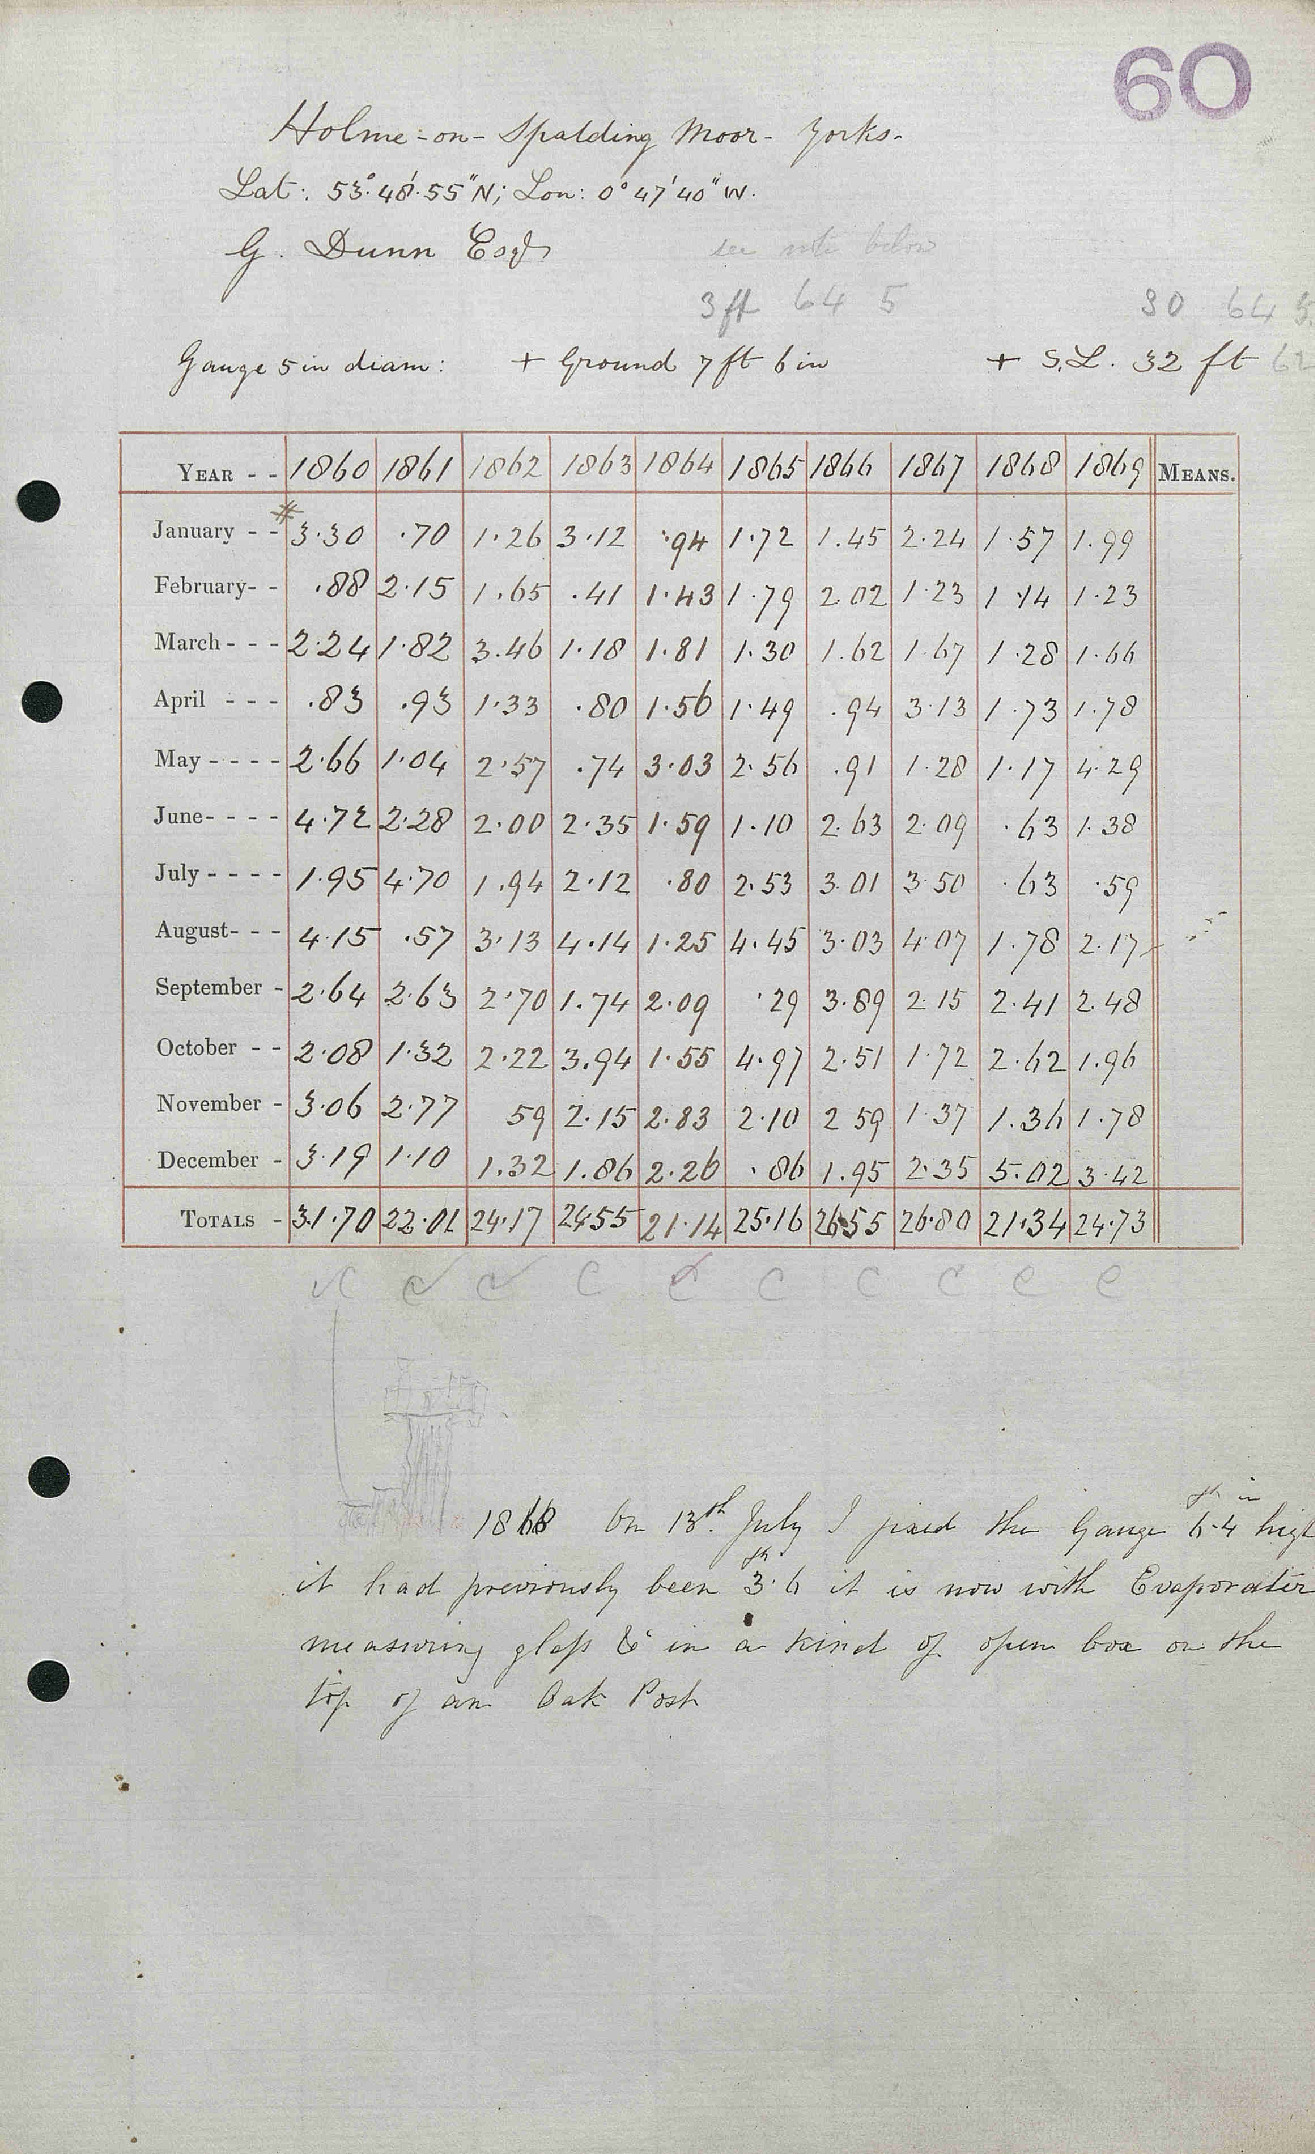 60
Holme-on-Spalding Moor - Yorks.
Lat: 53°.48'.55"N; Lon: 0°47'40"W.
G. Dunn Esqr
see note below
3 ft 64 5
30 64 5
Gauge 5 in diam: + Ground 7 ft 6 in + S.L. 32 ft
YEAR - - 1860 1861 1862 1863 1864 1865 1866 1867 1868 1869 MEANS.
January - - # 3.30 .70 1.26 3.12 .94 1.72 1.45 2.24 1.57 1.99
February - - .88 2.15 1.65 .41 1.43 1.79 2.02 1.23 1.14 1.23
March - - - 2.24 1.82 3.46 1.18 1.81 1.30 1.62 1.67 1.28 1.66
April - - - .83 .93 1.33 .80 1.56 1.49 .94 3.13 1.73 1.78
May - - - - 2.66 1.04 2.57 .74 3.03 2.56 .91 1.28 1.17 4.29
June - - - - 4.72 2.28 2.00 2.35 1.59 1.10 2.63 2.09 .63 1.38
July - - - - 1.95 4.70 1.94 2.12 .80 2.53 3.01 3.50 .63 .59
August - - - 4.15 .57 3.13 4.14 1.25 4.45 3.03 4.07 1.78 2.17
September - 2.64 2.63 2.70 1.74 2.09 .29 3.89 2.15 2.41 2.48
October - - 2.08 1.32 2.22 3.94 1.55 4.97 2.51 1.72 2.62 1.96
November - 3.06 2.77 59 2.15 2.83 2.10 2 59 1.37 1.36 1.78
December - 3.19 1.10 1.32 1.86 2.26 .86 1.95 2.35 5.02 3.42
TOTALS - 31.70 22.01 24.17 2455 21.14 25.16 2655 26.80 21.34 24.73
C C C C C C C C C C
1868 On 13th July I fixed the Gauge 6 ft 4 in high
it had previously been 3 ft 6 it is now with Evaporater
measuring glass &c in a kind of open box on the
top of an Oak Post